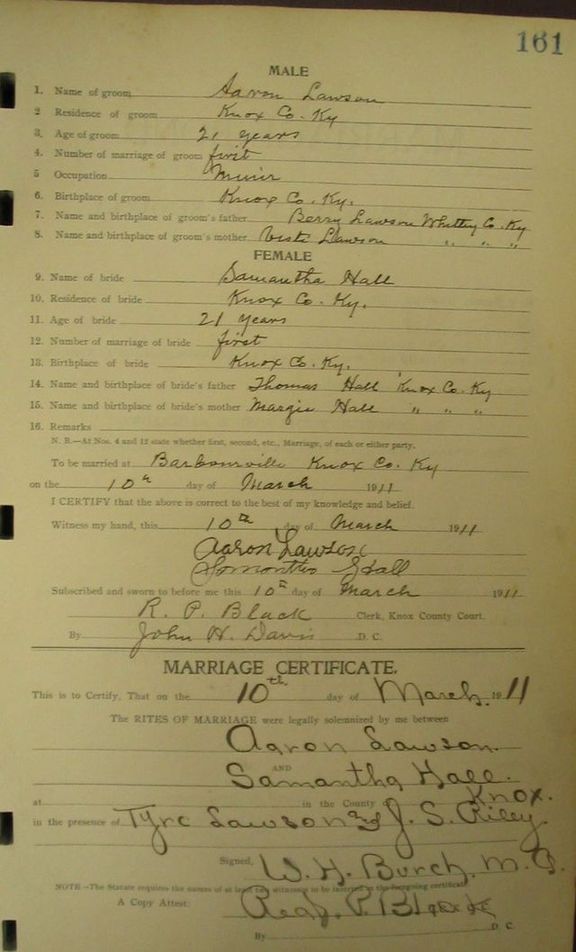 161
MALE
1. Name of groom Aaron Lawson
2 Residence of groom Knox Co. Ky
3. Age of groom 21 years
4. Number of marriage of groom first
5 Occupation Minir
6. Birthplace of groom Knox Co. Ky.
7. Name and birthplace of groom's father Berry Lawson Whitley Co. Ky
8. Name and birthplace of groom's mother Lawson " " "
FEMALE
9. Name of bride Samantha Hall
10. Residence of bride Knox Co. Ky.
11. Age of bride 21 years
12. Number of marriage of bride first
13. Birthplace of bride Knox Co. Ky.
14. Name and birthplace of bride's father Thomas Hall Knox Co. Ky
15. Name and birthplace of bride's mother Margie Hall " " "
16. Remarks
N. B.—At Nos. 4 and 12 state whether first, second, etc., Marriage, of each or either party.
To be married at Barbourville Knox Co. Ky
on the 10th day of March 1911
I CERTIFY that the above is correct to the best of my knowledge and belief.
Witness my hand, this 10th day of March 1911
Aaron Lawson
Samantha Hall
Subscribed and sworn to before me this 10th day of March 1911
R. P. Black Clerk, Knox County Court.
By John H. Davis D. C.
MARRIAGE CERTIFICATE.
This is to Certify, That on the 10th day of March. 1911
The RITES OF MARRIAGE were legally solemnized by me between
Aaron Lawson.
AND
Samantha Hall.
at in the County Knox.
in the presence of Tyre Lawson & J. S. Riley.
Signed, W. H. Burch, M. G.
NOTE—The Statute requires the names of at least two witnesses to be inserted in the foregoing certificate
A Copy Attest: Read P. Black
By D. C.